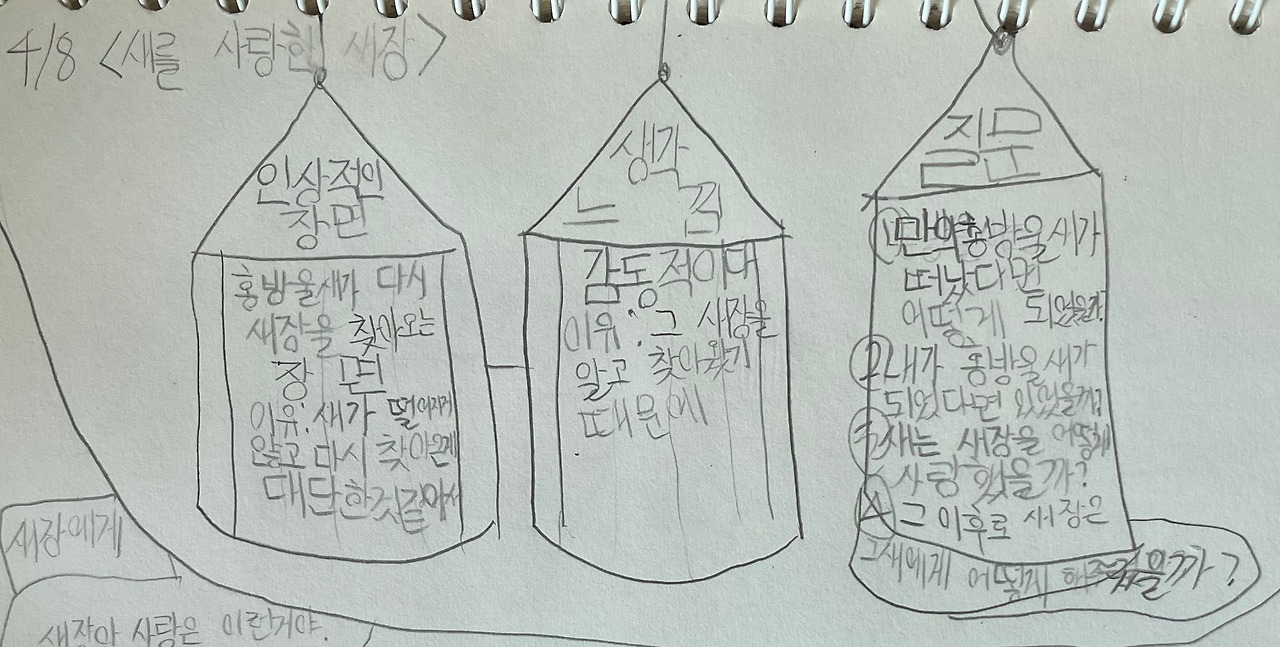 4/8 <새를 사랑한 새장>
인상적인
장면
홍방울새가 다시
새장을 찾아오는
장면
이유: 새가 떨어지지
않고 다시 찾아온게
대단한것같아서
생각
느낌
감동적이다
이유: 그 새장을
알고 찾아왔기
때문에
질문
① 만약 홍방울새가
떠났다면
어떻게 되었을까?
② 내가 홍방울새가
되었다면 있었을까?
③ 새는 새장을 어떻게
사랑했을까?
④ 그 이후로 새장은
그새에게 어떻게 해주었을까?
새장에게
새장아 사랑은 이런거야.